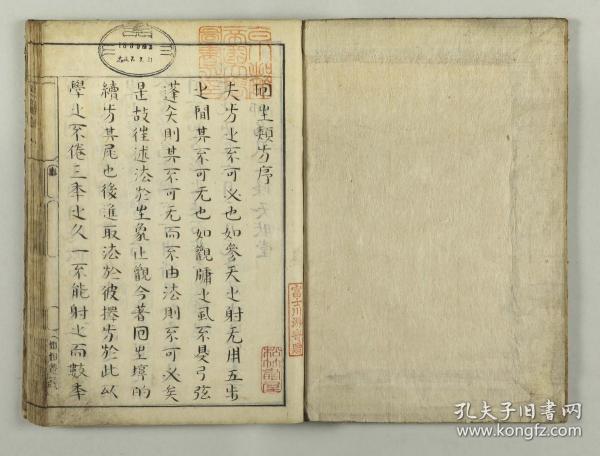 回生類方序
夫方之不可必也如參天之射无用五步
之間其不可无也如觀牖之風不是弓弦
蓬矢則其不可无而不由法則不可必矣
是故往述法於生象止觀今著回生
續方其尾也後進取法於彼擇方於此以
學之不倦三年之久一不能射之而數年
富士川游寄贈
孔夫子旧书网
www.kongfz.com